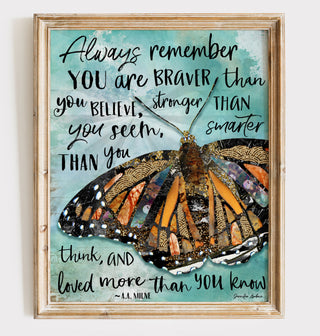 Always remember
YOU are BRAVER than
you BELIEVE, stronger THAN
you seem, smarter
THAN YOU
think, AND
loved more than YOU know
~A.A. MILNE